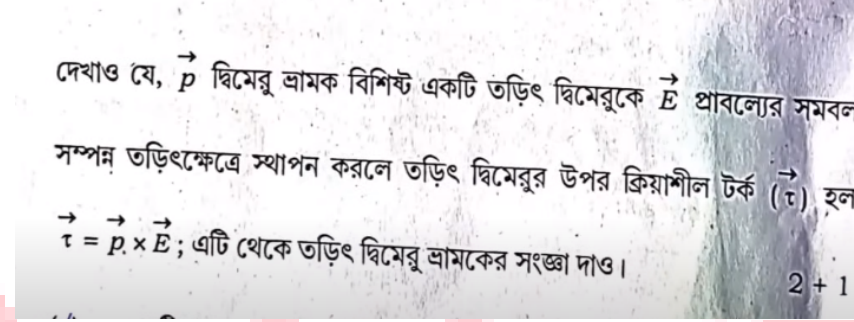 দেখাও যে, p⃗ দ্বিমেরু ভ্রামক বিশিষ্ট একটি তড়িৎ দ্বিমেরুকে E⃗ প্রাবল্যের সমবল
সম্পন্ন তড়িৎক্ষেত্রে স্থাপন করলে তড়িৎ দ্বিমেরুর উপর ক্রিয়াশীল টর্ক (τ⃗) হল
τ⃗ = p⃗ × E⃗ ; এটি থেকে তড়িৎ দ্বিমেরু ভ্রামকের সংজ্ঞা দাও।
2 + 1